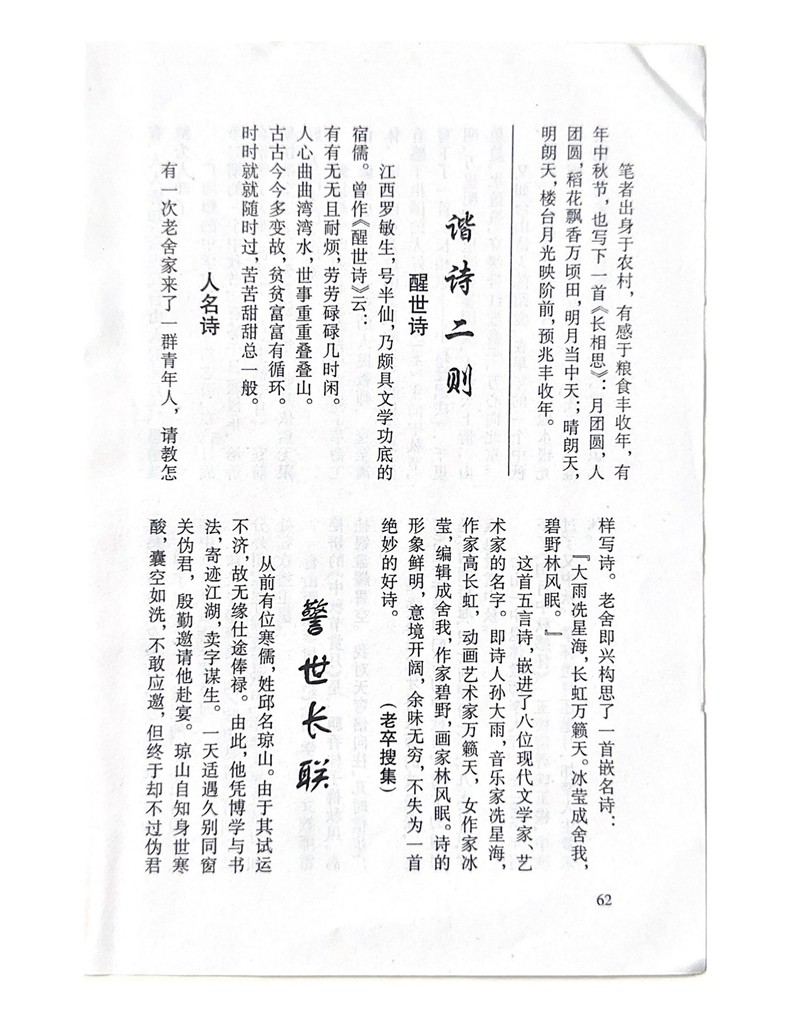 笔者出身于农村，有感于粮食丰收年，有
年中秋节，也写下一首《长相思》：月团圆，人
团圆，稻花飘香万顷田，明月当中天；晴朗天，
明朗天，楼台月光映阶前，预兆丰收年。
谐诗二则
醒世诗
江西罗敏生，号半仙，乃颇具文学功底的
宿儒。曾作《醒世诗》云：
有有无无且耐烦，劳劳碌碌几时闲。
人心曲曲湾湾水，世事重重叠叠山。
古古今今多变故，贫贫富富有循环。
时时就就随时过，苦苦甜甜总一般。
人名诗
有一次老舍家来了一群青年人，请教怎
样写诗。老舍即兴构思了一首嵌名诗：
『大雨洗星海，长虹万籁天。冰莹成舍我，
碧野林风眠。』
这首五言诗，嵌进了八位现代文学家、艺
术家的名字。即诗人孙大雨，音乐家冼星海，
作家高长虹，动画艺术家万籁天，女作家冰
莹，编辑成舍我，作家碧野，画家林风眠。诗的
形象鲜明，意境开阔，余味无穷，不失为一首
绝妙的好诗。
（老卒搜集）
警世长联
从前有位寒儒，姓邱名琼山。由于其试运
不济，故无缘仕途俸禄。由此，他凭博学与书
法，寄迹江湖，卖字谋生。一天适遇久别同窗
关伪君，殷勤邀请他赴宴。琼山自知身世寒
酸，囊空如洗，不敢应邀，但终于却不过伪君
62